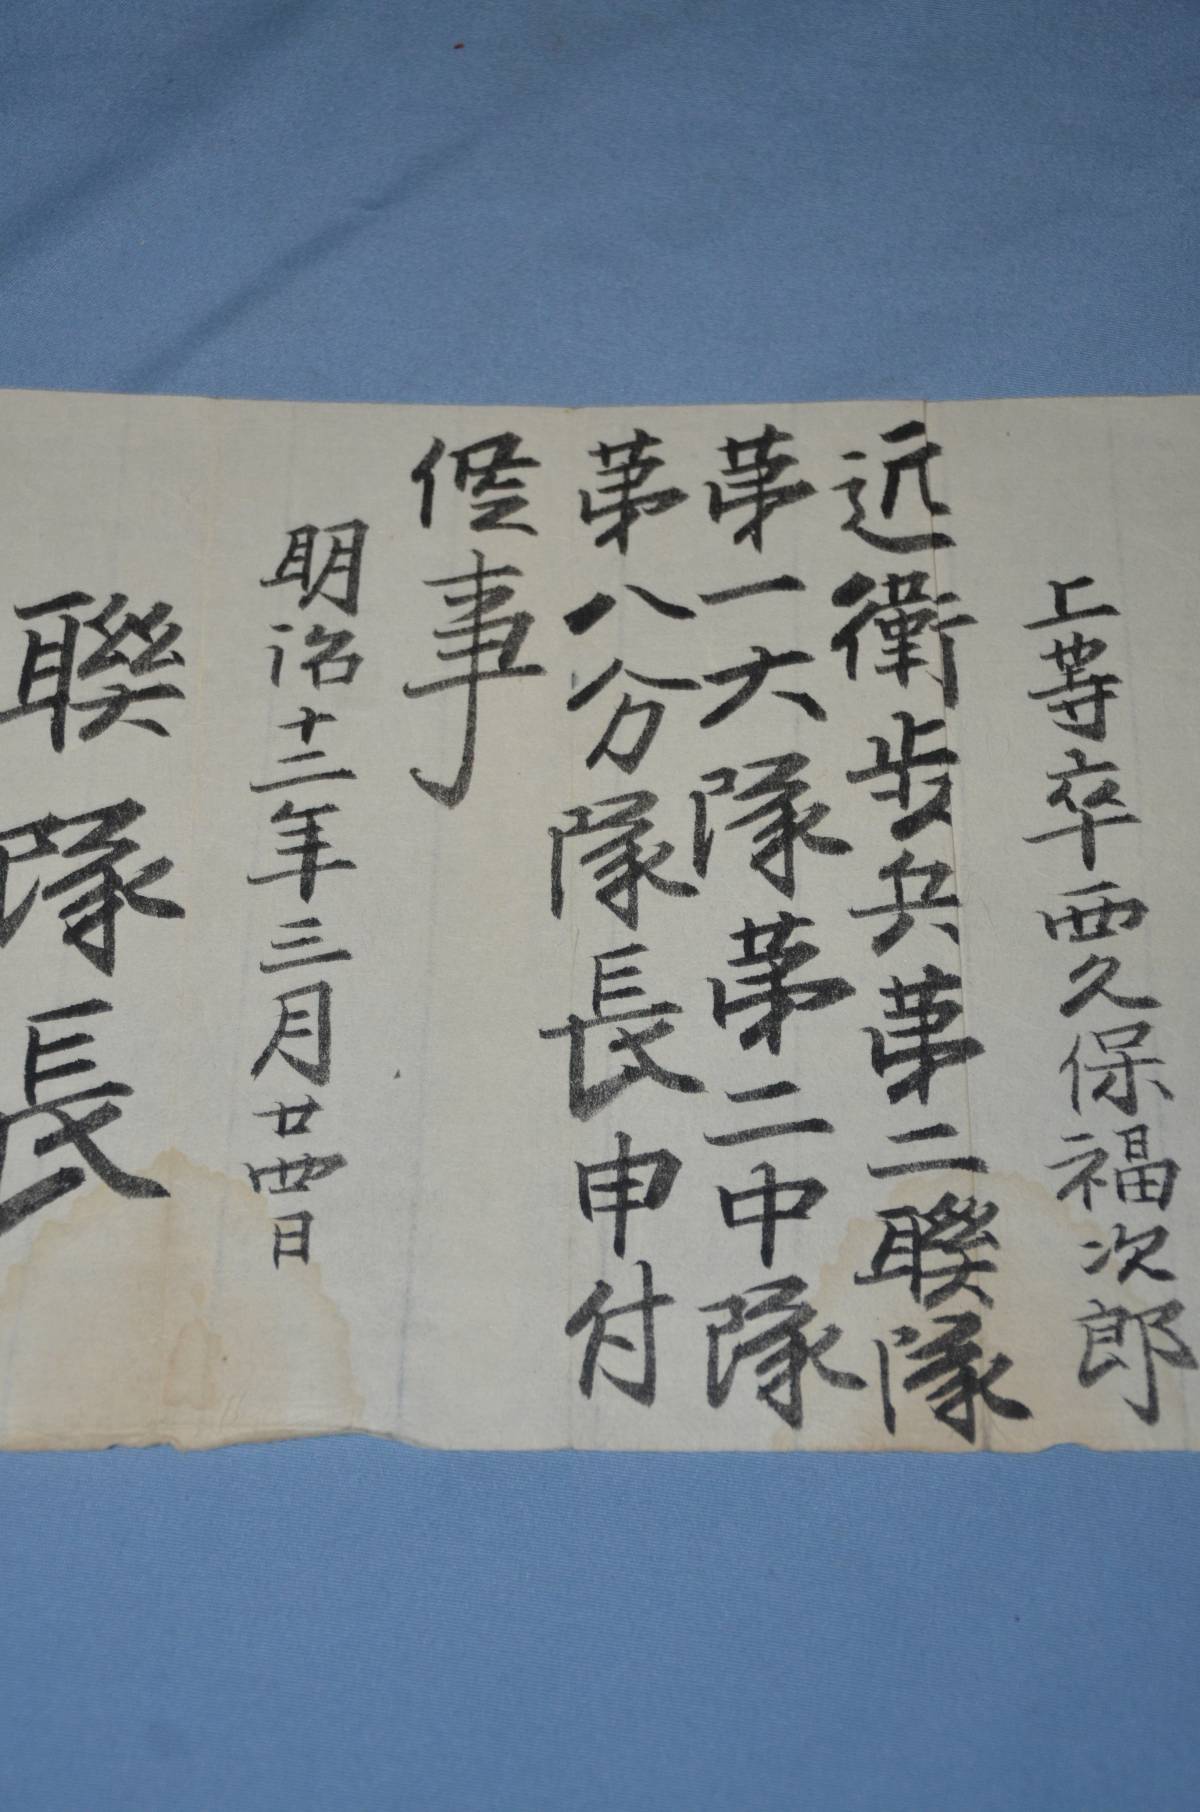 上等卒西久保福次郎
近衛歩兵第二聯隊
第一大隊第二中隊
第八分隊長申付
候事
明治十二年三月廿四日
聯隊長